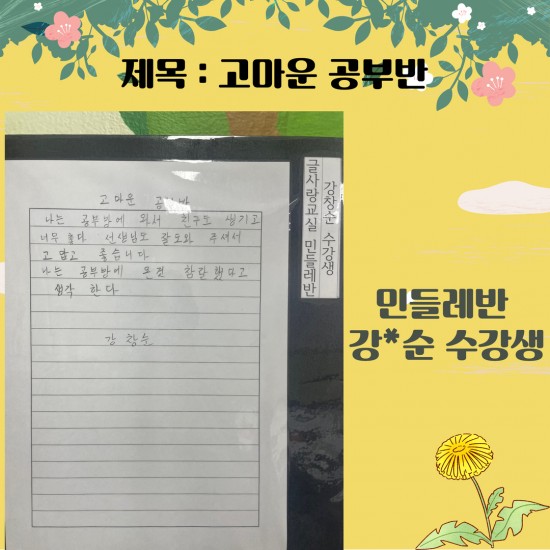 제목 : 고마운 공부반
고마운 공부방
나는 공부방에 와서 친구도 생기고
너무 좋다 선생님도 잘도와 주셔서
고맙고 좋습니다
나는 공부방에 온것 잘했다고
생각 한다
강창순
강창순 수강생
글사랑교실 민들레반
민들레반
강*순 수강생